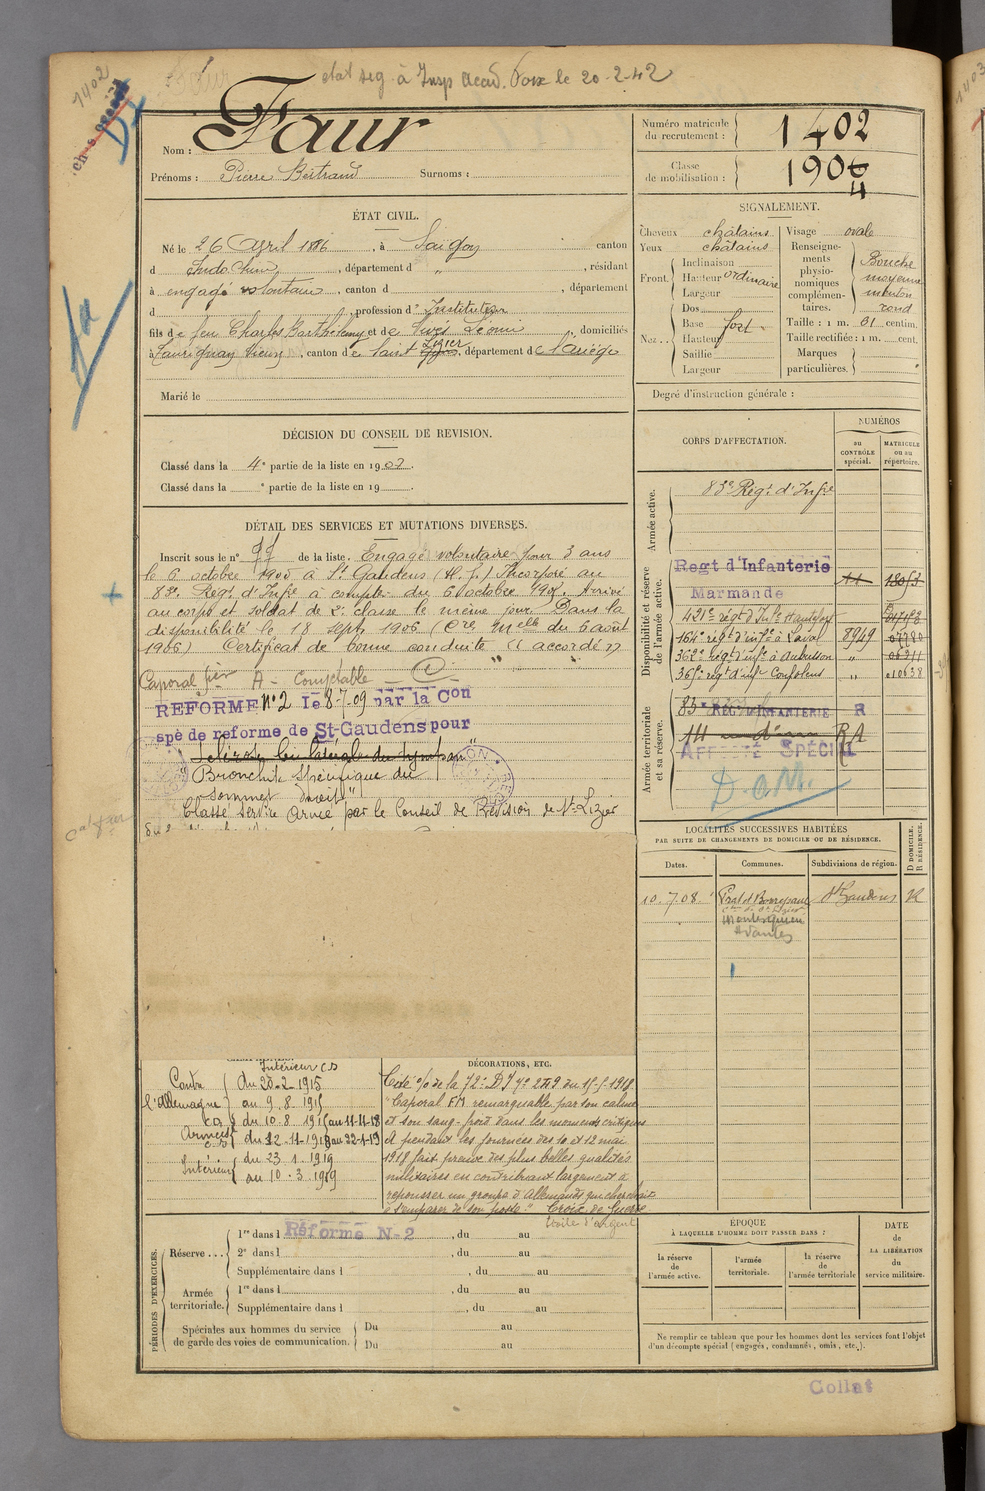 1402
etat sig. à Insp Acad. Foix le 20-2-42
Nom : Faur
Prénoms : Pierre Bertrand Surnoms :
Numéro matricule
du recrutement : 1402
Classe
de mobilisation : 1904
ÉTAT CIVIL.
Né le 26 Avril 1886, à Saïgon canton
d Indo Chine, département d „, résidant
à engagé volontaire, canton d , département
d , profession d' Instituteur
fils de feu Charles Barthélemy et de Vives Léonie, domiciliés
à Taurignan Vieux, canton de Saint Lizier, département de l'Ariège
Marié le
SIGNALEMENT.
Cheveux châtains
Yeux châtains
Front.
Inclinaison
Hauteur ordinaire
Largeur
Nez..
Dos
Base fort
Hauteur
Saillie
Largeur
Visage ovale
Renseigne-
ments
physio-
nomiques
complémen-
taires.
Bouche
moyenne
menton
rond
Taille : 1 m. 61 centim.
Taille rectifiée : 1 m. cent.
Marques
particulières.
Degré d'instruction générale :
DÉCISION DU CONSEIL DE REVISION.
Classé dans la 4e partie de la liste en 1907.
Classé dans la e partie de la liste en 19
DÉTAIL DES SERVICES ET MUTATIONS DIVERSES.
Inscrit sous le n° 99 de la liste. Engagé volontaire pour 3 ans
le 6 octobre 1905 à St Gaudens (H. G.) Incorporé au
83e Regt d'Infie à compter du 6 octobre 1905. Arrivé
au corps et soldat de 2e classe le même jour. Dans la
disponibilité le 18 septe 1906 (Cre Melle du 6 août
1906) Certificat de bonne conduite "accordé"
Caporal A - Comptable
REFORME N°2 le 8-7-09 par la Con
spé de reforme de St-Gaudens pour
"Sclérose bilatérale du tympan"
"Bronchite spécifique du
sommet droit"
Classé service armé par le Conseil de Révision de St-Lizier
CORPS D'AFFECTATION.
NUMÉROS
au
CONTRÔLE
spécial.
MATRICULE
ou au
répertoire.
Armée active.
83e Regt d'Infie
Disponibilité et réserve
de l'armée active.
Regt d'Infanterie
Marmande
421e régt d'Infie
164e régt d'infie à Laval 8949
362e régt d'infie à Aubusson „
365e régt d'infie Confolens „ 010638
Armée territoriale
et sa réserve.
83e RÉGT D'INFANTERIE R
144 d° RA
AFFECTÉ SPÉCIAL
D.O.M.
LOCALITÉS SUCCESSIVES HABITÉES
PAR SUITE DE CHANGEMENTS DE DOMICILE OU DE RÉSIDENCE.
Dates.
Communes.
Subdivisions de région.
D DOMICILE.
R RÉSIDENCE.
10.7.08. Prat et Bonrepaux St Gaudens R
Montesquieu
Avantès
Intérieur CS
Contre
l'Allemagne
du 20-2-1915
au 9.8.1915
Armées
du 10.8.1915 au 11-11-18
du 12.11-1918 au 22-1-19
Intérieur
du 23.1.1919
au 10.3.1919
DÉCORATIONS, ETC.
Cité o/ de la 72e DI
"Caporal FM remarquable par son calme
et son sang-froid dans les moments critiques
A pendant les journées des 10 et 12 mai
1918 fait preuve des plus belles qualités
militaires en contribuant largement à
repousser un groupe d'Allemands qui cherchait
à s'emparer de son poste" Croix de Guerre
étoile d'argent
PÉRIODES D'EXERCICES.
Réserve ...
1re dans l Réforme N-2, du au
2e dans l , du au
Supplémentaire dans l , du au
Armée
territoriale.
1re dans l , du au
Supplémentaire dans l , du au
Spéciales aux hommes du service
de garde des voies de communication.
Du au
Du au
ÉPOQUE
À LAQUELLE L'HOMME DOIT PASSER DANS :
la réserve
de
l'armée active.
l'armée
territoriale.
la réserve
de
l'armée territoriale
DATE
de
LA LIBÉRATION
du
service militaire.
Ne remplir ce tableau que pour les hommes dont les services font l'objet
d'un décompte spécial (engagés, condamnés, omis, etc.).
Collat